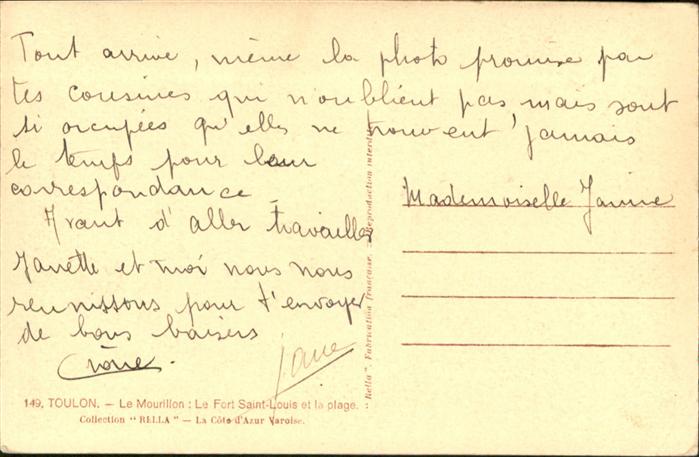 Tout arrive, même la photo promise par
tes cousines qui n'oublient pas mais sont
si occupées qu'elles ne trouvent jamais
le temps pour leur
correspondance.
Avant d'aller travailler
Janette et moi nous nous
reunissons pour t'envoyer
de bons baisers
Mademoiselle Janine
149. TOULON. — Le Mourillon : Le Fort Saint-Louis et la plage.
Collection "RELLA" — La Côte d'Azur Varoise.
"Rella". Fabrication française. — Reproduction interdite